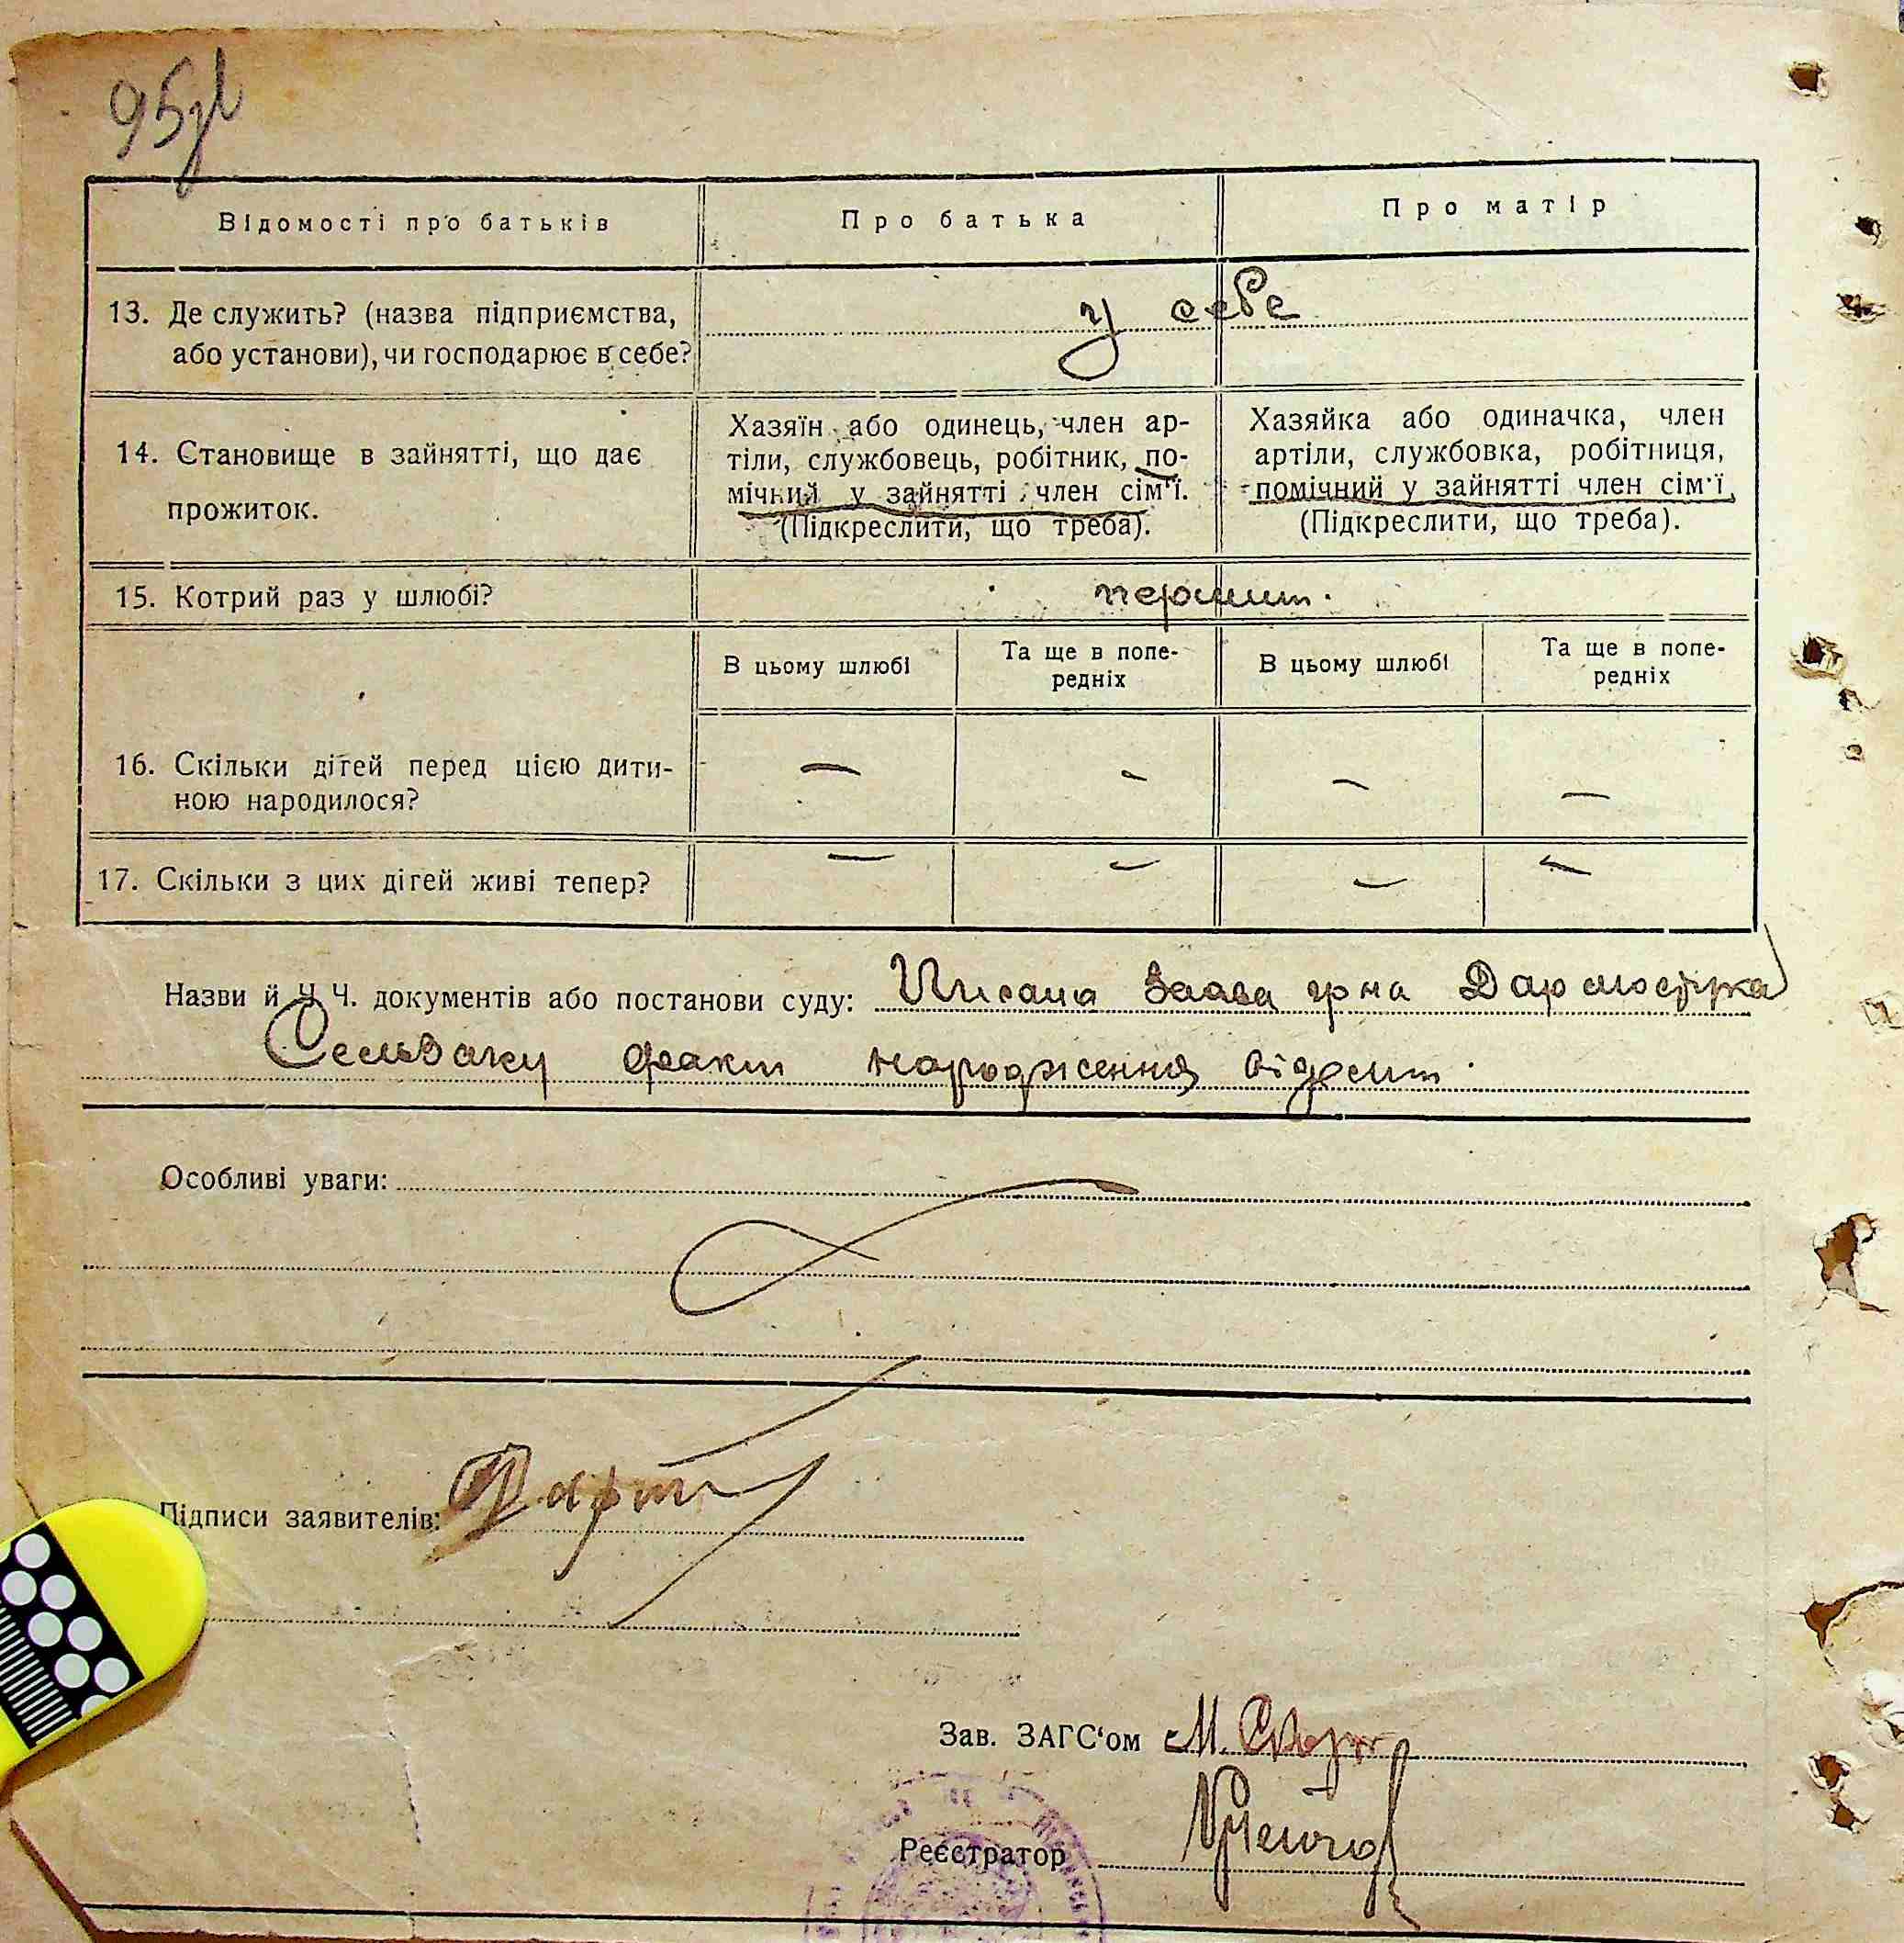 95
Відомості про батьків
Про батька
Про матір
13. Де служить? (назва підприємства,
або установи), чи господарює в себе?
у себе
14. Становище в зайнятті, що дає
прожиток.
Хазяїн або одинець, член ар-
тіли, службовець, робітник, по-
мічний у зайнятті член сім'ї.
(Підкреслити, що треба).
Хазяйка або одиначка, член
артіли, службовка, робітниця,
помічний у зайнятті член сім'ї,
(Підкреслити, що треба).
15. Котрий раз у шлюбі?
перший.
В цьому шлюбі
Та ще в попе-
редніх
В цьому шлюбі
Та ще в попе-
редніх
16. Скільки дітей перед цією дити-
ною народилося?
— - — —
17. Скільки з цих дітей живі тепер?
— — — —
Назви й Ч.Ч. документів або постанови суду: заява гр на
факт народження
Особливі уваги:
Підписи заявителів:
Зав. ЗАГС'ом М.
Реєстратор